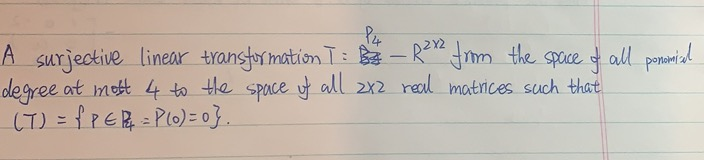 P4
A surjective linear transformation T: – R^2×2 from the space of all ponomial
degree at most 4 to the space of all 2×2 real matrices such that
(T) = { P ∈ P4 = P(0) = 0 }.